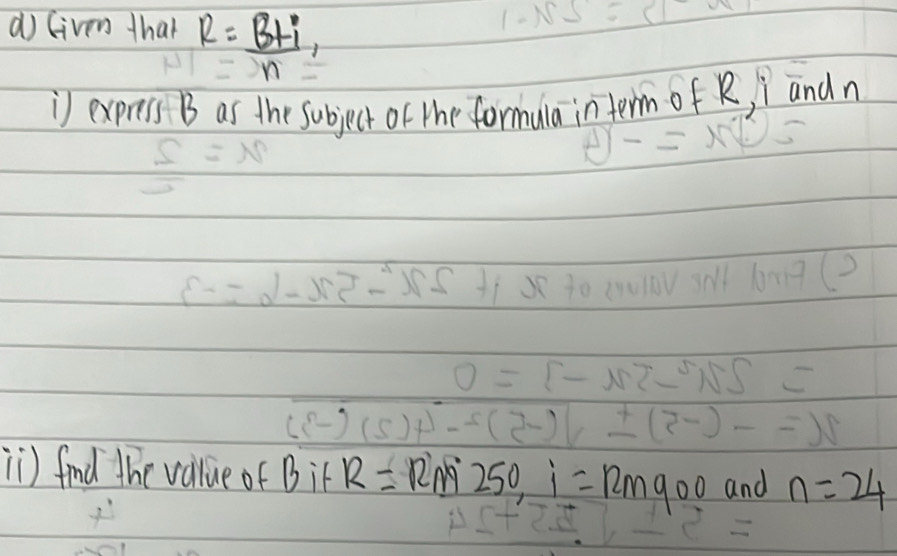 d) Given that R = B+i,
n
i) express B as the subject of the formula in term of R, i and n
ii) find the value of B if R = RM 250, i = RM 900 and n = 24